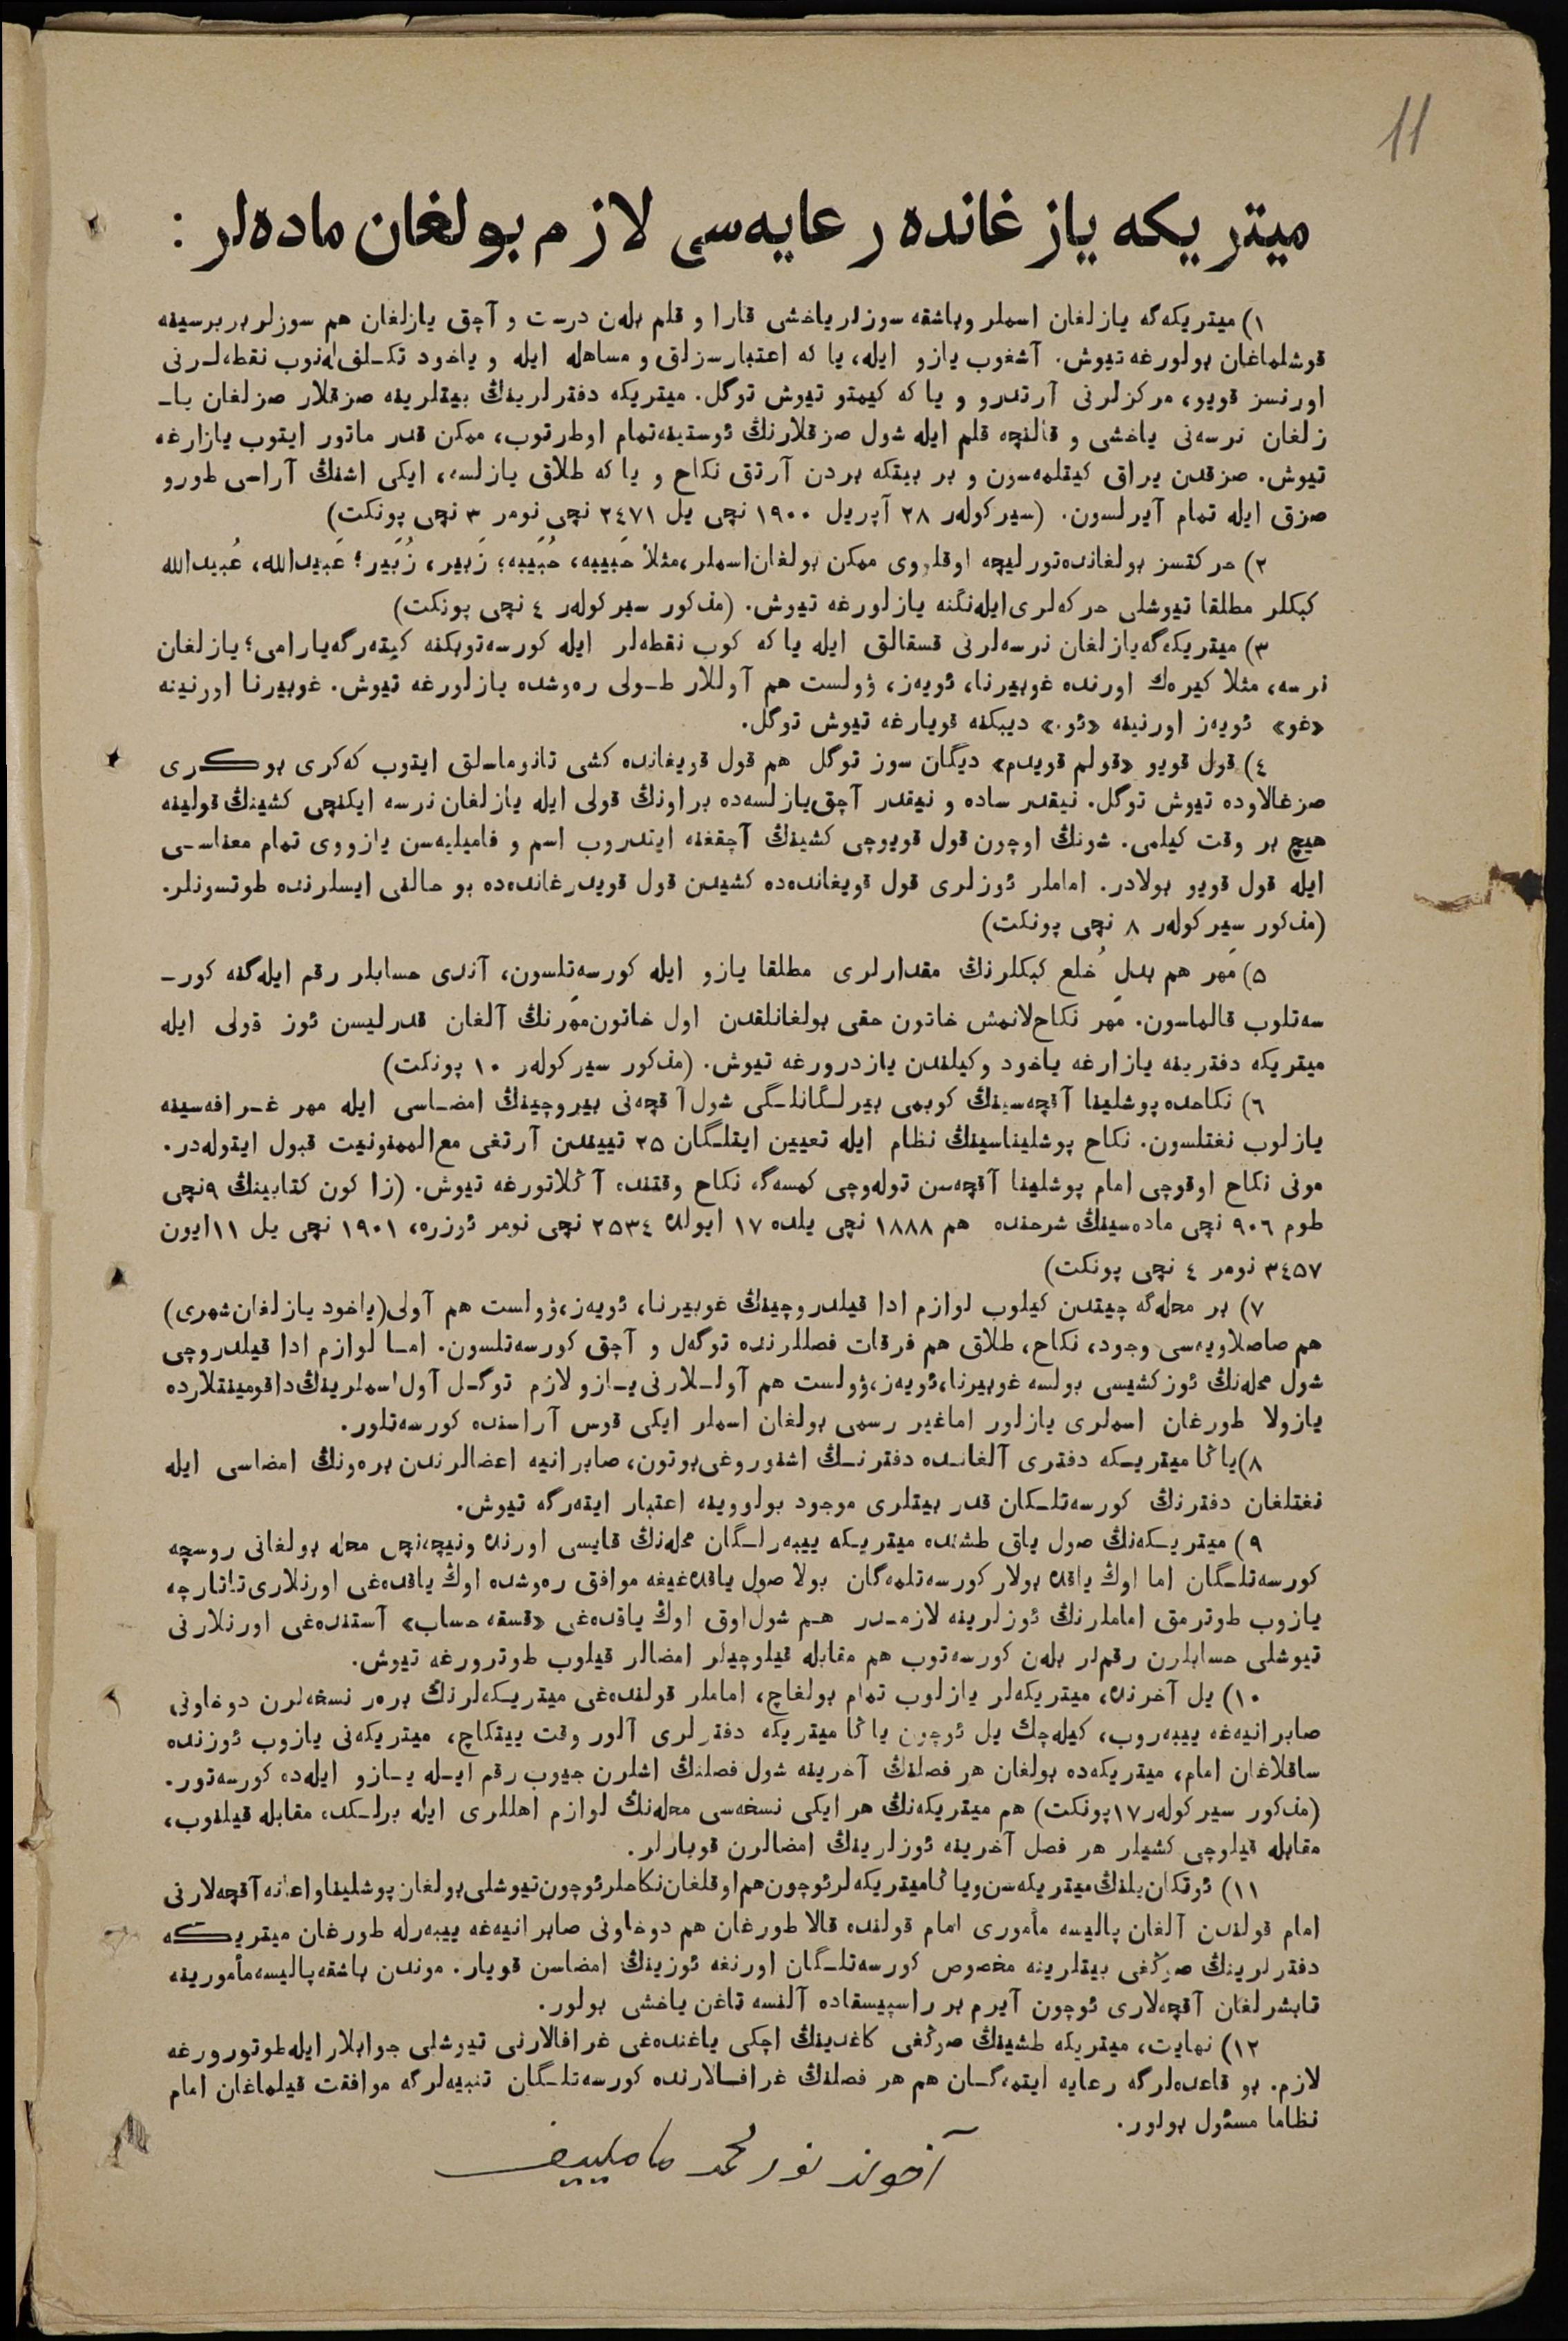 11
ميتريكه يازغانده رعايه‌سى لازم بولغان ماده‌لر :
١) ميتريكه‌گه يازلغان اسملر وباشقه سوزلر ياخشى قارا و قلم بله‌ن درست و آچق يازلغان هم سوزلر بربرسينه
قوشلماغان بولورغه تيوش. آشغوب يازو ايله، يا كه اعتبارسزلق و مساهله ايله و ياخود تكـلف له‌نوب نقطه‌لـرنى
اورنسز قويو، مركزلرنى آرتدرو و يا كه كيمتو تيوش توگل. ميتريكه دفترلرينڭ بيتلرينه صزقلار صزلغان يا‌ـ
زلغان نرسه‌نى ياخشى و قالنچه قلم ايله شول صزقلارنڭ ئوستينه‌تمام اوطرتوب، ممكن قدر ماتور ايتوب يازارغه
تيوش. صزقدن يراق كيتلمه‌سون و بر بيتكه بردن آرتق نكاح و يا كه طلاق يازلسه، ايكى اشنڭ آراسى طورو
صزق ايله تمام آيرلسون. (سيركوله‌ر ٢٨ آپريل ١٩٠٠ نچى يل ٢٤٧١ نچى نومر ٣ نچى پونكت)
٢) حركتسز بولغانده‌تورليچه اوقلووى ممكن بولغان‌اسملر،مثلاً حَبيبه، حُبَيبه؛ زَبير، زُبَير؛ عَبيدالله، عُبيدالله
كبكلر مطلقا تيوشلى حركه‌لرى‌ايله‌نگنه يازلورغه تيوش. (مذكور سيركوله‌ر ٤ نچى پونكت)
٣) ميتريكه‌گه‌يازلغان نرسه‌لرنى قسقالق ايله يا كه كوب نقطه‌لر ايله كورسه‌توبكنه كيته‌رگه‌يارامى؛ يازلغان
نرسه، مثلا كيره‌ك اورنده غوبيرنا، ئويه‌ز، ۋولست هم آوللار طـولى ره‌وشده يازلورغه تيوش. غوبيرنا اورنينه
«غو» ئويه‌ز اورنينه «ئو.» ديبكنه قويارغه تيوش توگل.
٤) قول قويو «قولم قويدم» ديگان سوز توگل هم قول قويغانده كشى تانوماسلق ايتوب كه‌كرى بوكرى
صزغالاوده تيوش توگل. نيقدر ساده و نيقدر آچق‌يازلسه‌ده براونڭ قولى ايله يازلغان نرسه ايكنچى كشينڭ قولينه
هيچ بر وقت كيلمى. شونڭ اوچون قول قويوچى كشينڭ آچقغنه ايتدروب اسم و فاميليه‌سن يازووى تمام معناسـى
ايله قول قويو بولادر. اماملر ئوزلرى قول قويغانده‌ده كشيدن قول قويدرغانده‌ده بو حالنى ايسلرنده طوتسونلر.
(مذكور سيركوله‌ر ٨ نچى پونكت)
٥) مَهر هم بدلِ خُلع كبكلرنڭ مقدارلرى مطلقا يازو ايله كورسه‌تلسون، آندى حسابلر رقم ايله‌گنه كور‌ـ
سه‌تلوب قالماسون. مَهر نكاح‌لانمش خاتون حقى بولغانلقدن اول خاتون‌مَهرنڭ آلغان قدرليسن ئوز قولى ايله
ميتريكه دفترينه يازارغه ياخود وكيلندن يازدرورغه تيوش. (مذكور سيركوله‌ر ١٠ پونكت)
٦) نكاحده پوشلينا آقچه‌سينڭ كوبمى بيرلـگانلـگى شول آقچه‌نى بيروچينڭ امضـاسى ايله مهر غـرافه‌سينه
يازلوب نغتلسون. نكاح پوشليناسينڭ نظام ايله تعيين ايتلـگان ٢٥ تييندن آرتغى مع‌الممنونيت قبول ايتوله‌در.
مونى نكاح اوقوچى امام پوشلينا آقچه‌سن توله‌وچى كمسه‌گه نكاح وقتنده آڭلاتورغه تيوش. (زاكون كتابينڭ ٩نچى
طوم ٩٠٦ نچى ماده‌سينڭ شرحنده هم ١٨٨٨ نچى يلده ١٧ ايولده ٢٥٣٤ نچى نومر ئوزره، ١٩٠١ نچى يل ١١ايون
٣٤٥٧ نومر ٤ نچى پونكت)
٧) بر محله‌گه چيتدن كيلوب لوازم ادا قيلدروچينڭ غوبيرنا، ئويه‌ز،ۋولست هم آولى(ياخود يازلغان‌شهرى)
هم صاصلاويه‌سى وجود، نكاح، طلاق هم فرقات فصللرنده توگه‌ل و آچق كورسه‌تلسون. امـا لوازم ادا قيلدروچى
شول محله‌نڭ ئوز كشيسى بولسه غوبيرنا،ئويه‌ز،ۋولست هم آولـلارنى يـازو لازم توگـل آول‌اسملرينڭ‌داقومينتلارده
يازولا طورغان اسملرى يازلور اماغير رسمى بولغان اسملر ايكى قوس آراسنده كورسه‌تلور.
٨)ياڭا ميتريـكه دفترى آلغانـده دفترنـڭ اشنوروغى‌بوتون، صابرانيه اعضالرندن بره‌ونڭ امضاسى ايله
نغتلغان دفترنڭ كورسه‌تلـكان قدر بيتلرى موجود بولووينه اعتبار ايته‌رگه تيوش.
٩) ميتريـكه‌نڭ صول ياق طشنده ميتريـكه ييبه‌رلـگان محله‌نڭ قايسى اورنده ونيچه‌نچى محله بولغانى روسچه
كورسه‌تلـگان اما اوڭ ياقده بولار كورسه‌تلمه‌گان بولا صول ياقده‌غيغه موافق ره‌وشده اوڭ ياقده‌غى اورنلارى‌تاتارچه
يازوب طوترمق اماملرنڭ ئوزلرينه لازمـدر هـم شول‌اوق اوڭ ياقده‌غى «قسقه حساب» آستنده‌غى اورنلارنى
تيوشلى حسابلرن رقم‌لر بله‌ن كورسه‌توب هم مقابله قيلوچيلر امضالر قيلوب طوترورغه تيوش.
١٠) يل آخرنده، ميتريكه‌لر يازلوب تمام بولغاچ، اماملر قولنده‌غى ميتريـكه‌لرنڭ بره‌ر نسخه‌لرن دوخاونى
صابرانيه‌غه ييبه‌روب، كيله‌چك يل ئوچون ياڭا ميتريكه دفترلرى آلور وقت ييتكاچ، ميتريكه‌نى يازوب ئوزنده
ساقلاغان امام، ميتريكه‌ده بولغان هر فصلنڭ آخرينه شول فصلنڭ اشلرن جيوب رقم ايـله يـازو ايله‌ده كورسه‌تور.
(مذكور سيركوله‌ر ١٧پونكت) هم ميتريكه‌نڭ هر ايكى نسخه‌سى محله‌نڭ لوازم اهللرى ايله برلـكده مقابله قيلنوب،
مقابله قيلوچى كشيلر هر فصل آخرينه ئوزلرينڭ امضالرن قويارلر.
١١) ئوتكان‌يلنڭ‌ميتريكه‌سن‌وياڭاميتريكه‌لرئوچون‌هم‌اوقلغان‌نكاحلرئوچون‌تيوشلى‌بولغان‌پوشليناواعانه‌آقچه‌لارنى
امام قولندن آلغان پاليسه مأمورى امام قولنده قالا طورغان هم دوخاونى صابرانيه‌غه ييبه‌رله طورغان ميتريـكه
دفترلرينڭ صوڭغى بيتلرينه مخصوص كورسه‌تلـگان اورنغه ئوزينڭ امضاسن قويار. موندن باشقه‌پاليسه‌مأمورينه
تابشرلغان آقچه‌لارى ئوچون آيرم بر راسپيسقاده آلنسه تاغن ياخشى بولور.
١٢) نهايت، ميتريكه طشينڭ صوڭغى كاغدينڭ اچكى ياغنده‌غى غرافالارنى تيوشلى جوابلار ايله‌طوتورورغه
لازم. بو قاعده‌لرگه رعايه ايتمه‌گـان هم هر فصلنڭ غرافـالارنده كورسه‌تلـگان تنبيه‌لرگه موافقت قيلماغان امام
نظاما مسئول بولور.
آخوند نورمحمد ماملييف